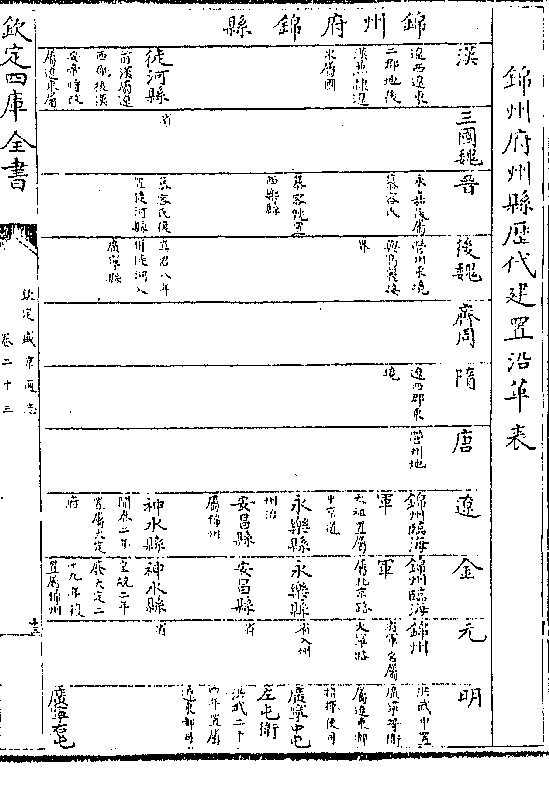 錦州府州縣歷代建置沿革表
錦州府錦縣
漢
遼西遼東
二郡地後
東屬國
徒河縣
前漢屬遼
西郡後漢
安帝時改
屬遼東屬
三國魏
省
晉
永嘉後屬
慕容氏
慕容皝置
西樂縣
慕容氏復
置徒河縣
後魏
營州東境
界
真君八年
併徒河入
廣寧縣
齊周
隋
遼西郡東
境
唐
營州地
遼
錦州臨海
軍
太祖置屬
中京道
永樂縣
州治
安昌縣
屬錦州
神水縣
開泰二年
置屬大定
府
金
錦州臨海
軍
屬北京路
永樂縣
安昌縣
神水縣
皇統二年
廢大定二
十九年復
置屬錦州
元
錦州
省軍名屬
大寧路
省入州
省
省
明
洪武中置
屬遼東都
指揮使司
廣寧中屯
左屯衛
洪武二十
四年置屬
遼東都司
廣寧右屯
欽定四庫全書
欽定盛京通志
卷二十三